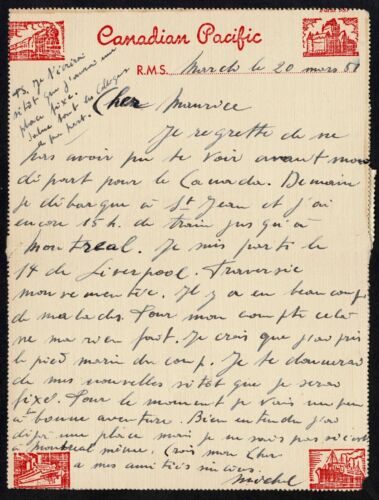 Canadian Pacific
R.M.S. March le 20 mars 51
PS. Je t'écrirai
sitôt que j'aurai une
place fixe.
Salue tout les
de ma part.
Cher Maurice
Je regrette de ne
pas avoir pu te voir avant mon
départ pour le Canada. Demain
je débarque à St Jean et j'ai
encore 15 h. de train jusqu'à
Montreal. Je suis parti le
14 de Liverpool. Traversée
mouvementée. Il y a eu beaucoup
de malades. Pour mon compte cela
ne m'a rien fait. Je crois que j'ai pris
le pied marin du coup. Je te donnerai
de mes nouvelles sitôt que je serai
fixé. Pour le moment je vais un peu
à bonne aventure. Bien entendu j'ai
déjà une place mais je ne sais pas si c'est
à Montreal même. Crois mon Cher
à mes amitiés sincères.
Michel